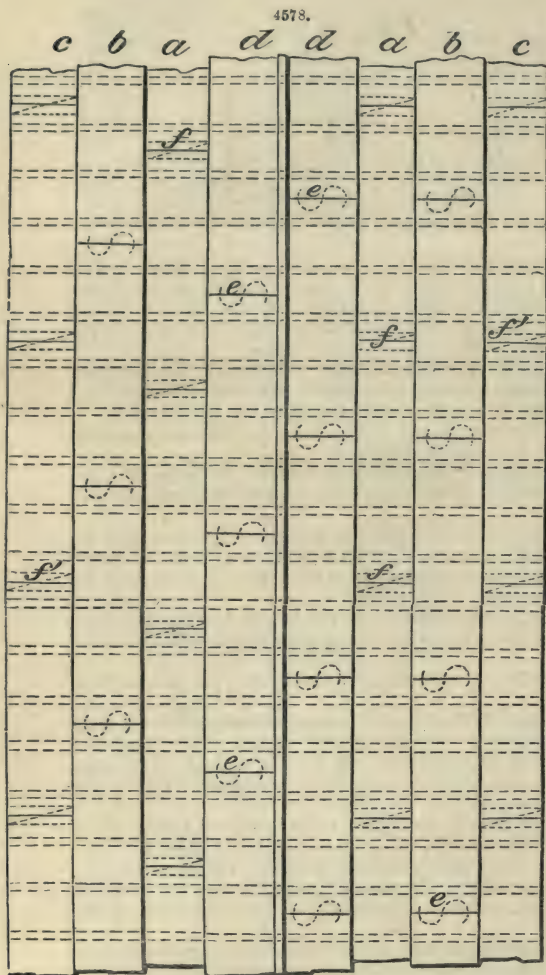 4578.
c b a d d a b c
f
e
e
f f'
f' f
e
e